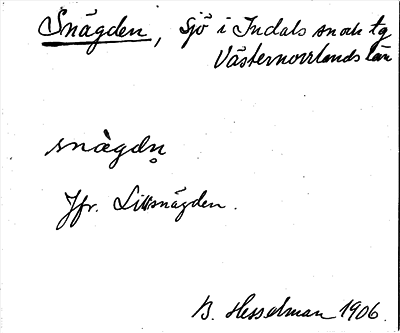 Snägden, Sjö i Indals sn och tg
Västernorrlands län
snàgdn̥
Jfr. Lillsnägden.
B. Hesselman 1906.